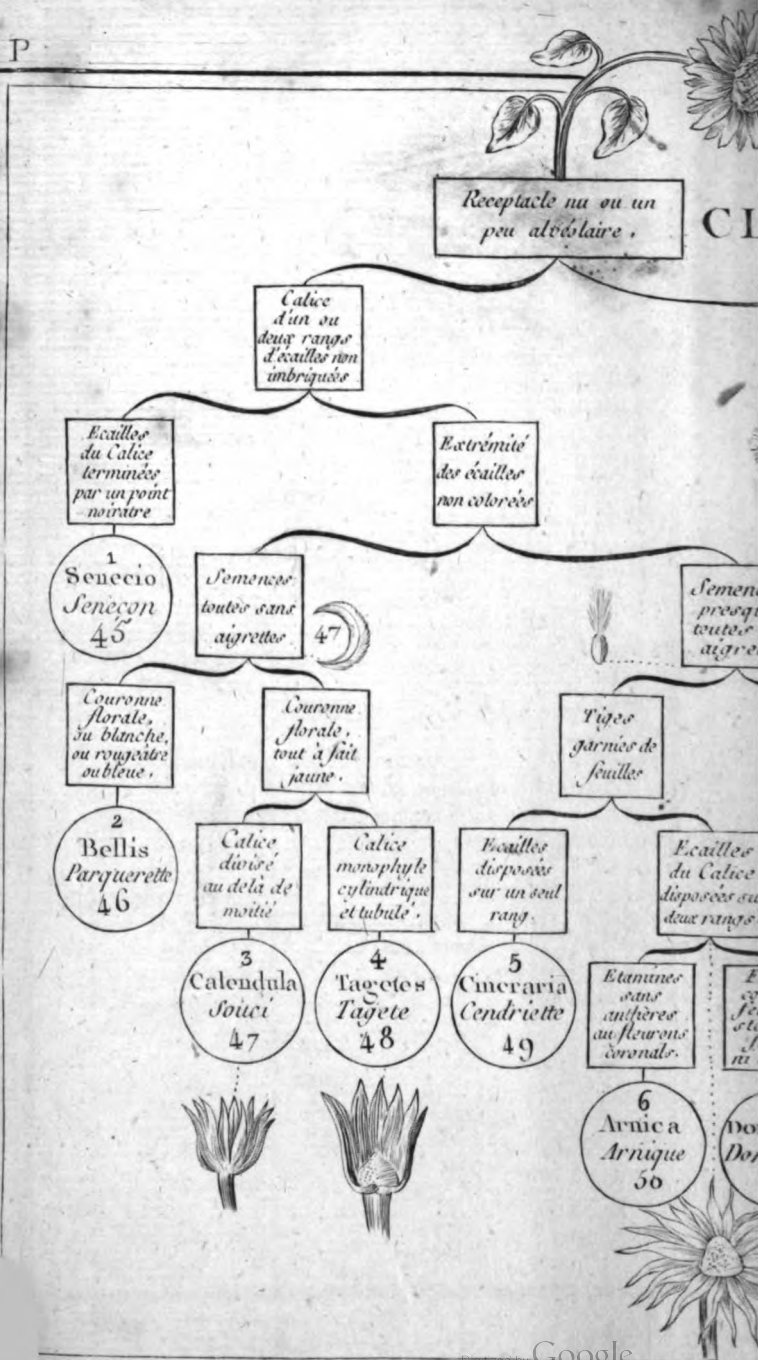 P
Receptacle nu ou un
peu alvéolaire.
CL
Calice
d'un ou
deux rangs
d'écailles non
imbriquées
Ecailles
du Calice
terminées
par un point
noiratre
Extrémité
des écailles
non colorées
1
Senecio
Seneçon
45
Semences
toutes sans
aigrettes
47
Semen
presqu
toutes
aigre
Couronne
florale,
ou blanche,
ou rougeâtre
ou bleue.
Couronne
florale,
tout à fait
jaune.
Tiges
garnies de
feuilles
2
Bellis
Parquerette
46
Calice
divisé
au delà de
moitié
Calice
monophyle
cylindrique
et tubulé.
Ecailles
disposées
sur un seul
rang.
Ecailles
du Calice
disposées su
deux rangs
3
Calendula
Souci
47
4
Tagetes
Tagete
48
5
Cineraria
Cendriette
49
Etamines
sans
anthères
au fleurons
coronals.
6
Arnica
Arnique
50
Dor
Dor
Google